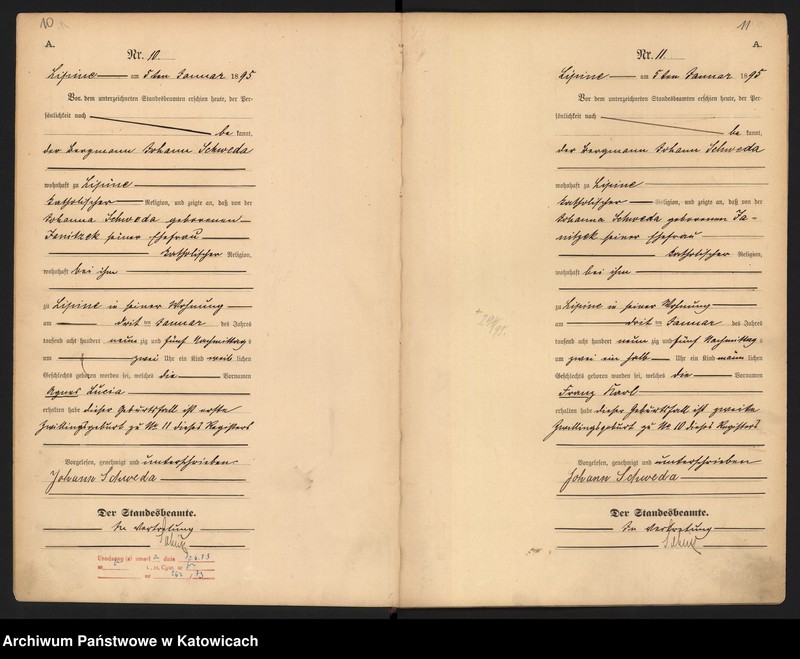 10
A.
Nr. 10.
Lipine am 5ten Januar 1895
Vor dem unterzeichneten Standesbeamten erschien heute, der Per-
sönlichkeit nach
be kannt,
der Bergmann Johann Schweda
wohnhaft zu Lipine
katholischer Religion, und zeigte an, daß von der
Johanna Schweda geborenen
Janitzek seiner Ehefrau
katholischer Religion,
wohnhaft bei ihm
zu Lipine in seiner Wohnung
am dritten Januar des Jahres
tausend acht hundert neunzig und fünf Nachmittags
um zwei Uhr ein Kind weiblichen
Geschlechts geboren worden sei, welches die Vornamen
Agnes Lucia
erhalten habe dieser Geburtsfall ist erste
Zwillingsgeburt zu No. 11 dieses Registers
Vorgelesen, genehmigt und unterschrieben
Johann Schweda
Der Standesbeamte.
In Vertretung
11
A.
Nr. 11.
Lipine am 5ten Januar 1895
Vor dem unterzeichneten Standesbeamten erschien heute, der Per-
sönlichkeit nach
be kannt,
der Bergmann Johann Schweda
wohnhaft zu Lipine
katholischer Religion, und zeigte an, daß von der
Johanna Schweda geborenen Ja-
nitzek seiner Ehefrau
katholischer Religion,
wohnhaft bei ihm
zu Lipine in seiner Wohnung
am dritten Januar des Jahres
tausend acht hundert neunzig und fünf Nachmittags
um zwei ein halb Uhr ein Kind männlichen
Geschlechts geboren worden sei, welches die Vornamen
Franz Karl
erhalten habe dieser Geburtsfall ist zweite
Zwillingsgeburt zu No. 10 dieses Registers
Vorgelesen, genehmigt und unterschrieben
Johann Schweda
Der Standesbeamte.
In Vertretung
Archiwum Państwowe w Katowicach